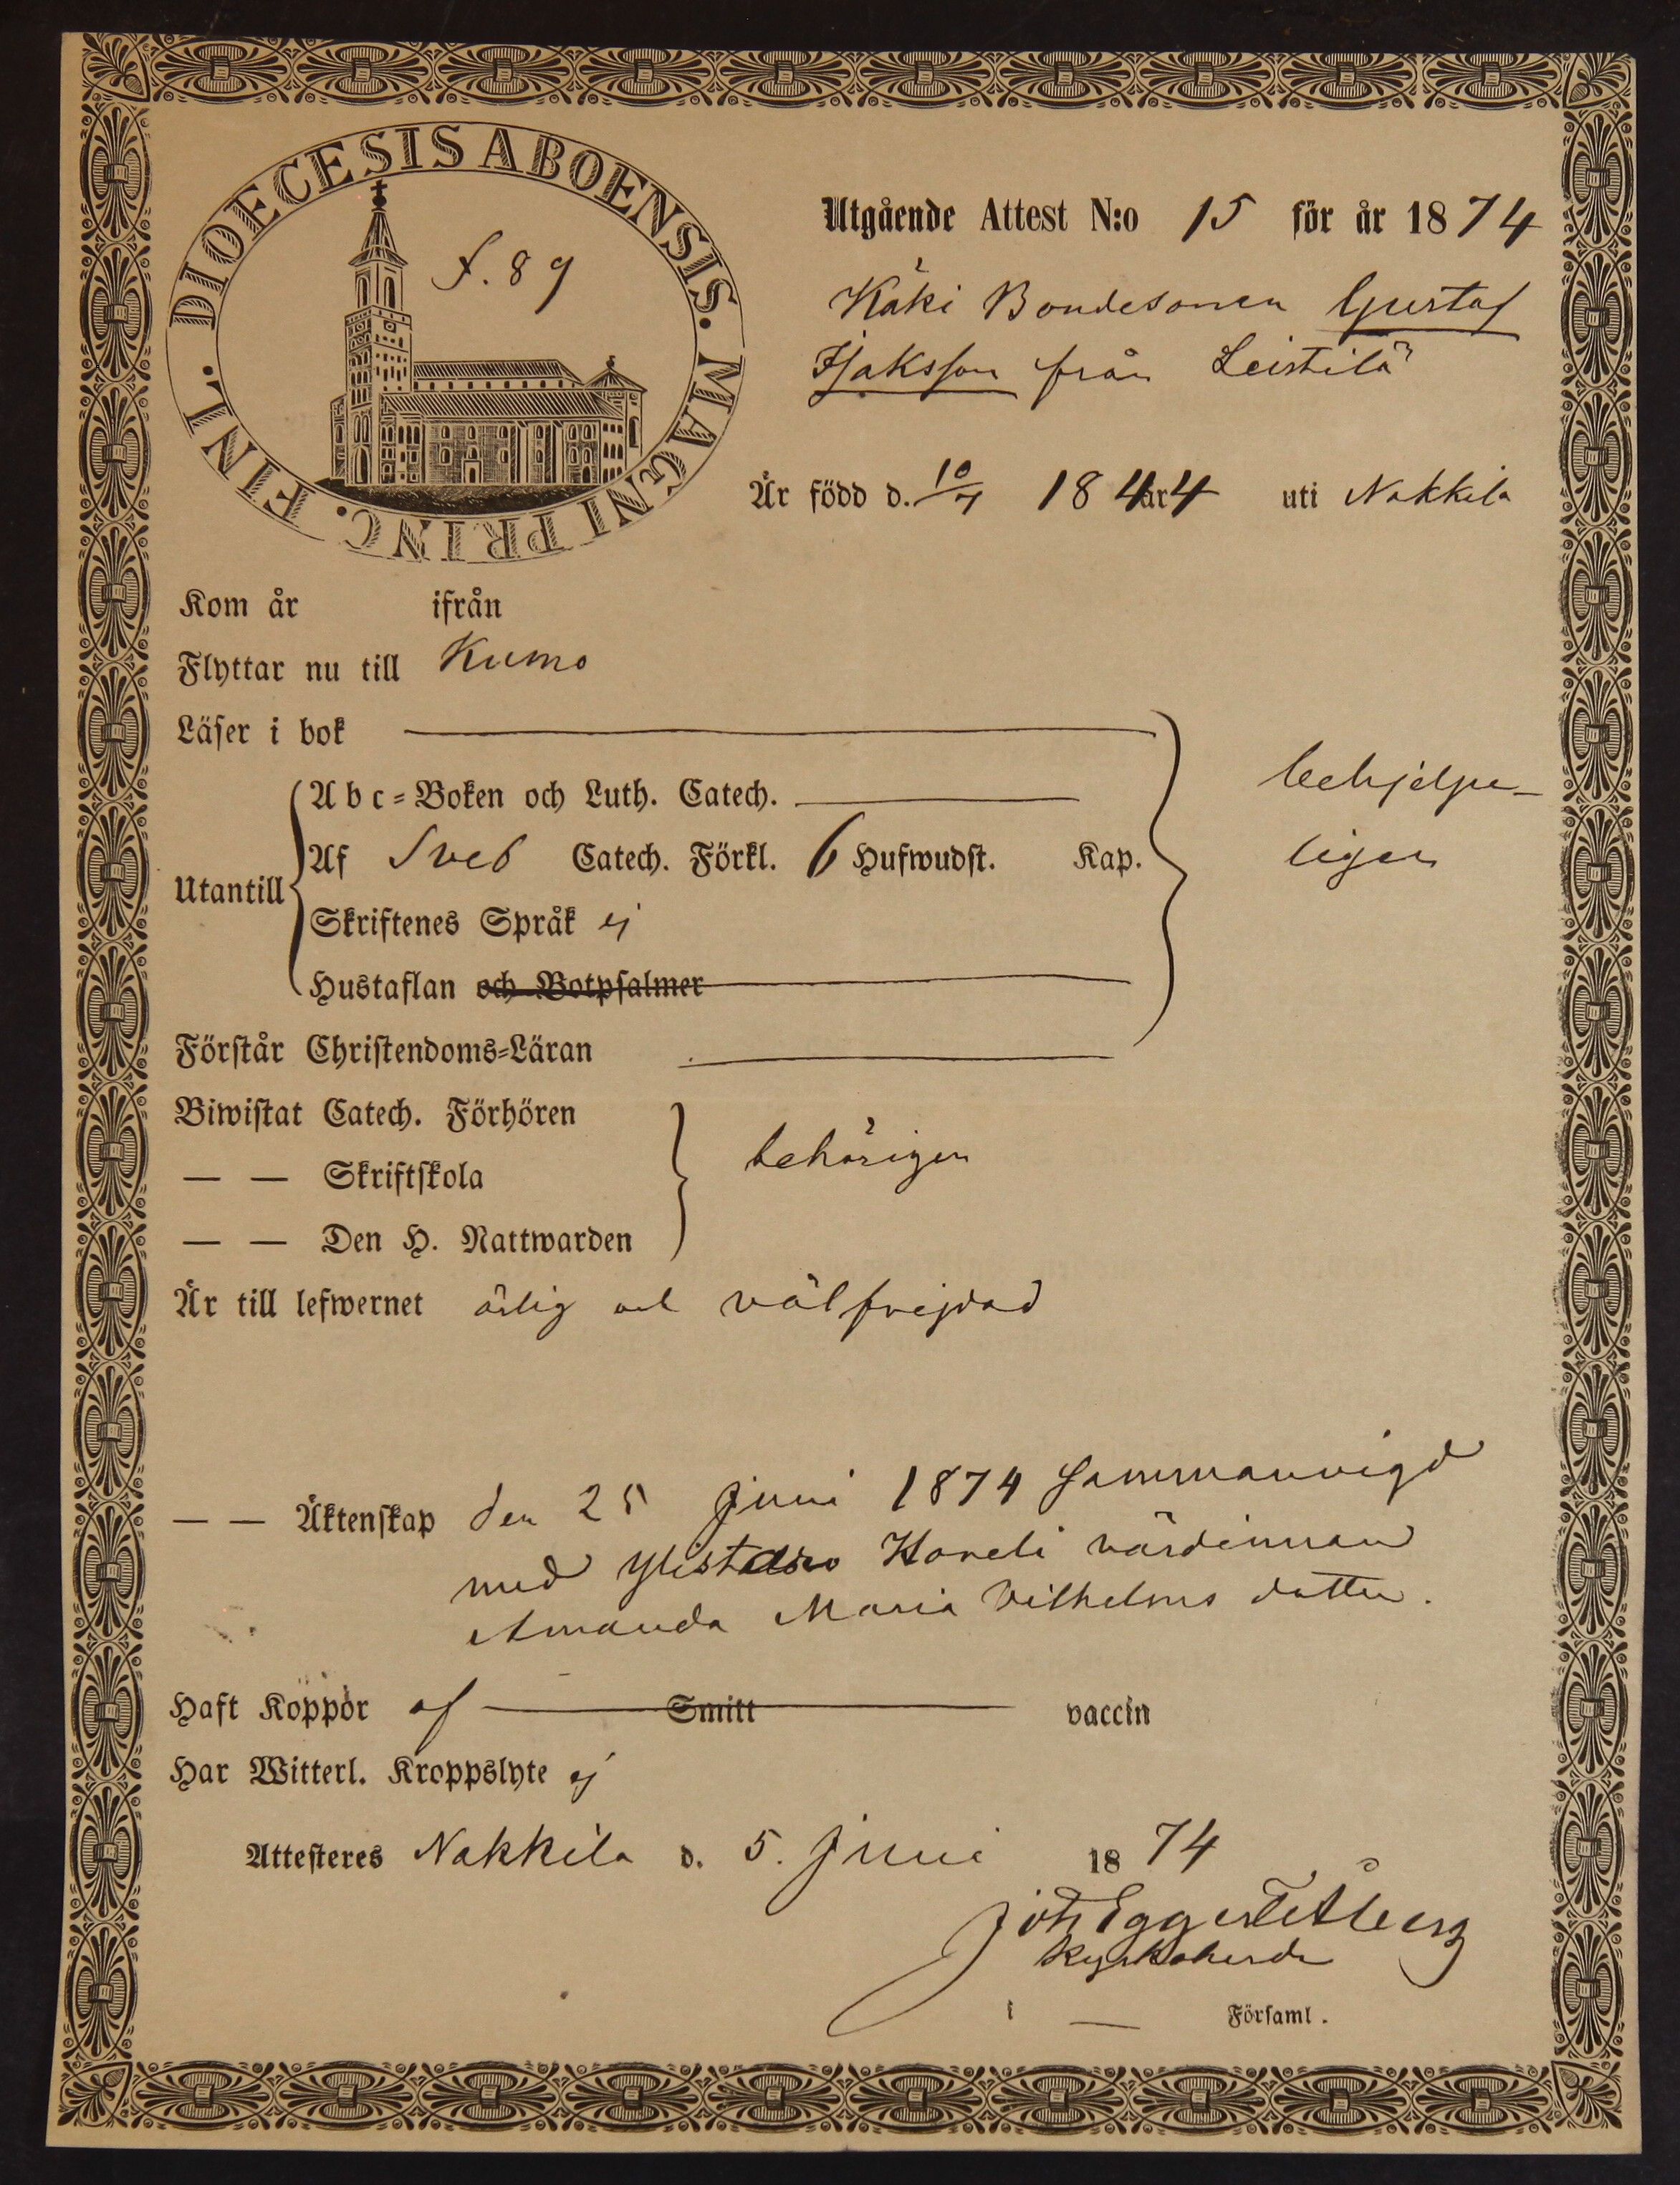 DIOECESIS ABOENSIS. MAGNI PRINC. FINL.
f. 89
Utgående Attest N:o 15 för år 1874
Käki Bondesonen Gustaf
Isaksson från Leistilä
Är född d. 10/7 1844 år uti Nakkila
Kom år ifrån
Flyttar nu till Kumo
Läser i bok
behjelpe-
ligen
Abc-Boken och Luth. Catech.
Utantill
Af Sveb Catech. Förkl. 6 Hufwudst. Kap.
Skriftenes Språk ej
Hustaflan och Botpsalmer
Förstår Christendoms-Läran
Biwistat Catech. Förhören
— — Skriftskola behörigen
— — Den H. Nattwarden
Är till lefwernet ärlig och välfrejdad
— — Äktenskap den 25 Juni 1874 sammanvigd
med Ylistaro Haveli värdinnan
Amanda Maria Vilhelms dotter.
Haft Koppor af Smitt vaccin
Har Witterl. Kroppslyte ej
Attesteres Nakkila d. 5. Juni 1874
Kyrkoherde
i — Församl.